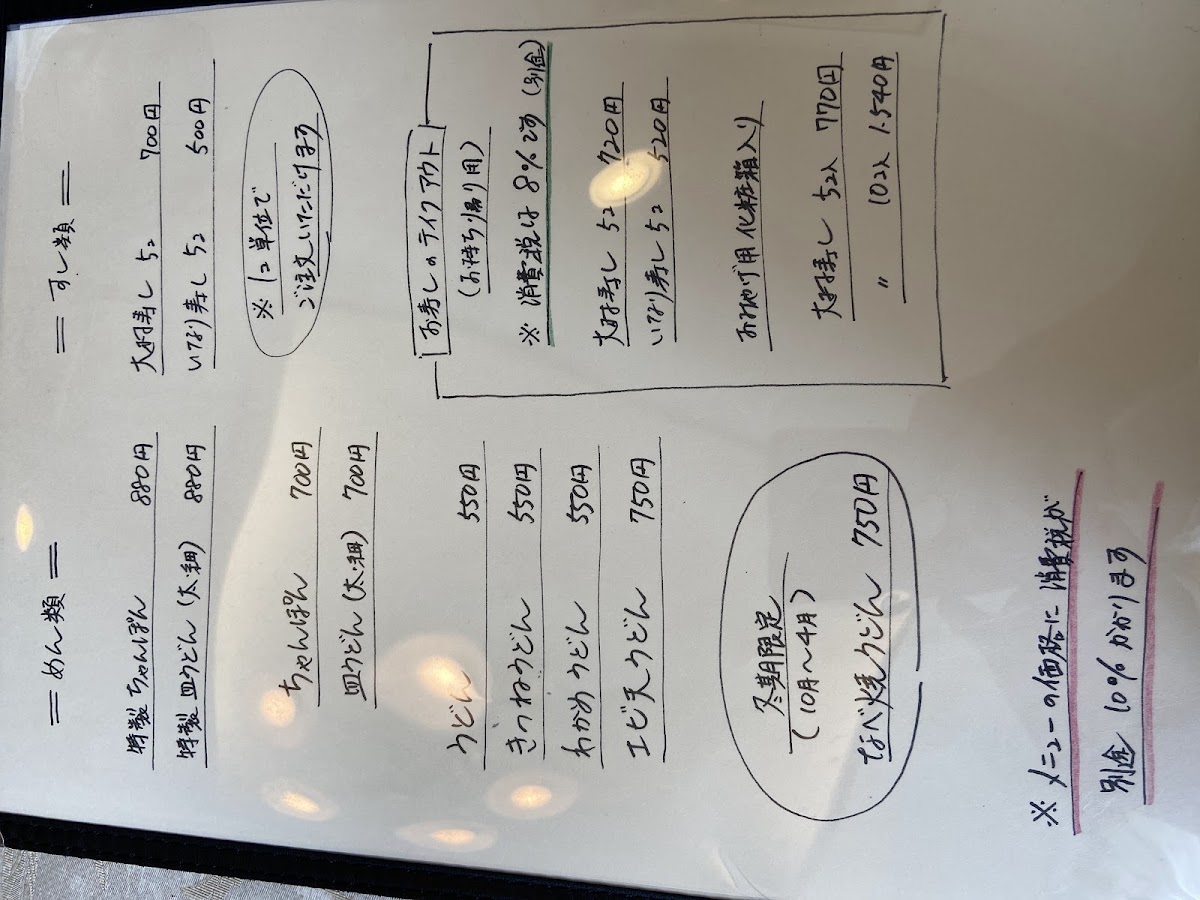 ＝めん類＝
特製ちゃんぽん 880円
特製皿うどん（太・細） 880円
ちゃんぽん 700円
皿うどん（太・細） 700円
うどん 550円
きつねうどん 550円
わかめうどん 550円
エビ天うどん 750円
冬期限定
（10月〜4月）
なべ焼うどん 750円
＝すし類＝
大村寿し 5コ 700円
いなり寿し 5コ 500円
※1コ単位で
ご注文いただけます
お寿しのテイクアウト
（お持ち帰り用）
※消費税は8%です（別途）
大村寿し 5コ 720円
いなり寿し 5コ 520円
おみやげ用化粧箱入り
大村寿し 5コ入 770円
〃 10コ入 1.540円
※メニューの価格に消費税が
別途10%かかります